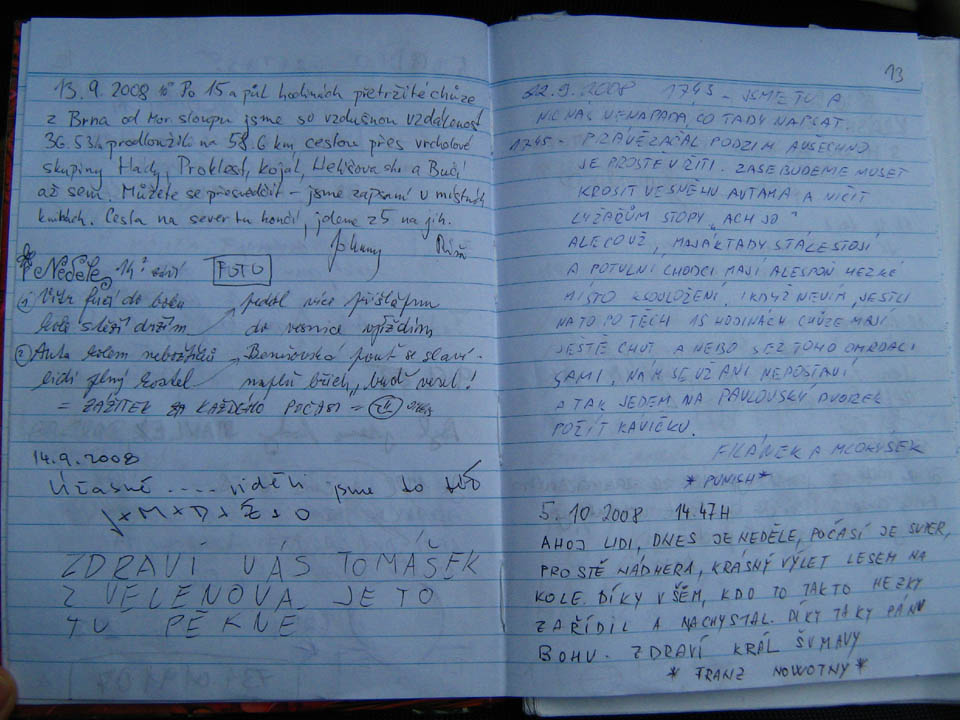 13.9.2008 Po 15 a půl hodinách přetržité chůze
z Brna od Mor. sloupu jsme su vzdušnou vzdálenost
36.53 prodloužili na 58.6 km cestou přes vrcholové
skupiny Hády, Proklest, Kojál, a Bučí
až sem. Můžete se přesvědčit – jsme zapsaní v místních
knihách. Cesta na severu končí, jdeme zs na jih.
Johnny
Neděle 14. září FOTO
① Vítr fučí do boku
kolo stěží držím
pedál více přišlápnu
do vesnice vjíždím
② Auta kolem
lidí plný kostel
pouť se slaví
buď vesel!
= ZÁŽITEK ZA KAŽDÉHO POČASÍ =
14.9.2008
Úžasné .... viděli jsme to
ZDRAVÍ VÁS TOMÁŠEK
Z VELENOVA. JE TO
TU PĚKNÉ
13
22.9.2008 1745 – JSME TU A
NIC NÁS NENAPADÁ, CO TADY NAPSAT.
1745 – PRÁVĚ ZAČAL PODZIM A VŠECHNO
JE PROSTE V ŘITI. ZASE BUDEME MUSET
KROSIT VE SNĚHU AUTAMA A NIČIT
LYŽAŘŮM STOPY "ACH JO"
ALE CO UŽ, MAJÁK TADY STÁLE STOJÍ
A POTULNÍ CHODCI MAJÍ ALESPOŇ HEZKÉ
MÍSTO K SOULOŽENÍ. I KDYŽ NEVÍM, JESTLI
NA TO PO TĚCH 15 HODINÁCH CHŮZE MAJÍ
JEŠTĚ CHUŤ A NEBO SEZ TOHO OMRDALI
SAMI. NÁM SE UŽ ANI NEPOSTAVÍ
A TAK JEDEM NA PAVLOVSKÝ DVOREK
POŽÍT KAVIČKU.
FILÁNEK A
*PUNISH*
5.10.2008 14.47H
AHOJ LIDI, DNES JE NEDĚLE, POČASÍ JE SUPER,
PROSTĚ NÁDHERA, KRÁSNÝ VÝLET LESEM NA
KOLE. DÍKY VŠEM, KDO TO TAKTO HEZKY
ZAŘÍDIL A NACHYSTAL. DÍKY TAKY PÁNU
BOHU. ZDRAVÍ KRÁL ŠUMAVY
* FRANZ NOWOTNY *